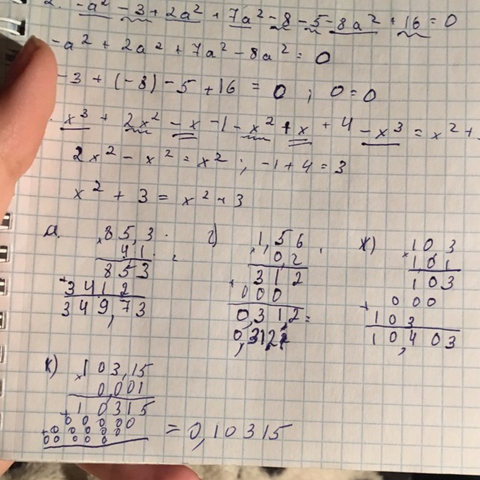 2. -a² - 3 + 2a² + 7a² - 8 - 5 - 8a² + 16 = 0
-a² + 2a² + 7a² - 8a² = 0
-3 + (-8) - 5 + 16 = 0 ; 0 = 0
x³ + 2x² - x - 1 - x² + x + 4 - x³ = x² +
2x² - x² = x² ; -1 + 4 = 3
x² + 3 = x² + 3
85,3
41
853
3412
349,73
1,56
0,2
312
000
0,312 =
ж) 103
101
103
000
103
10,403
к) 103,15
0,001
10315
00000
00000
= 0,10315